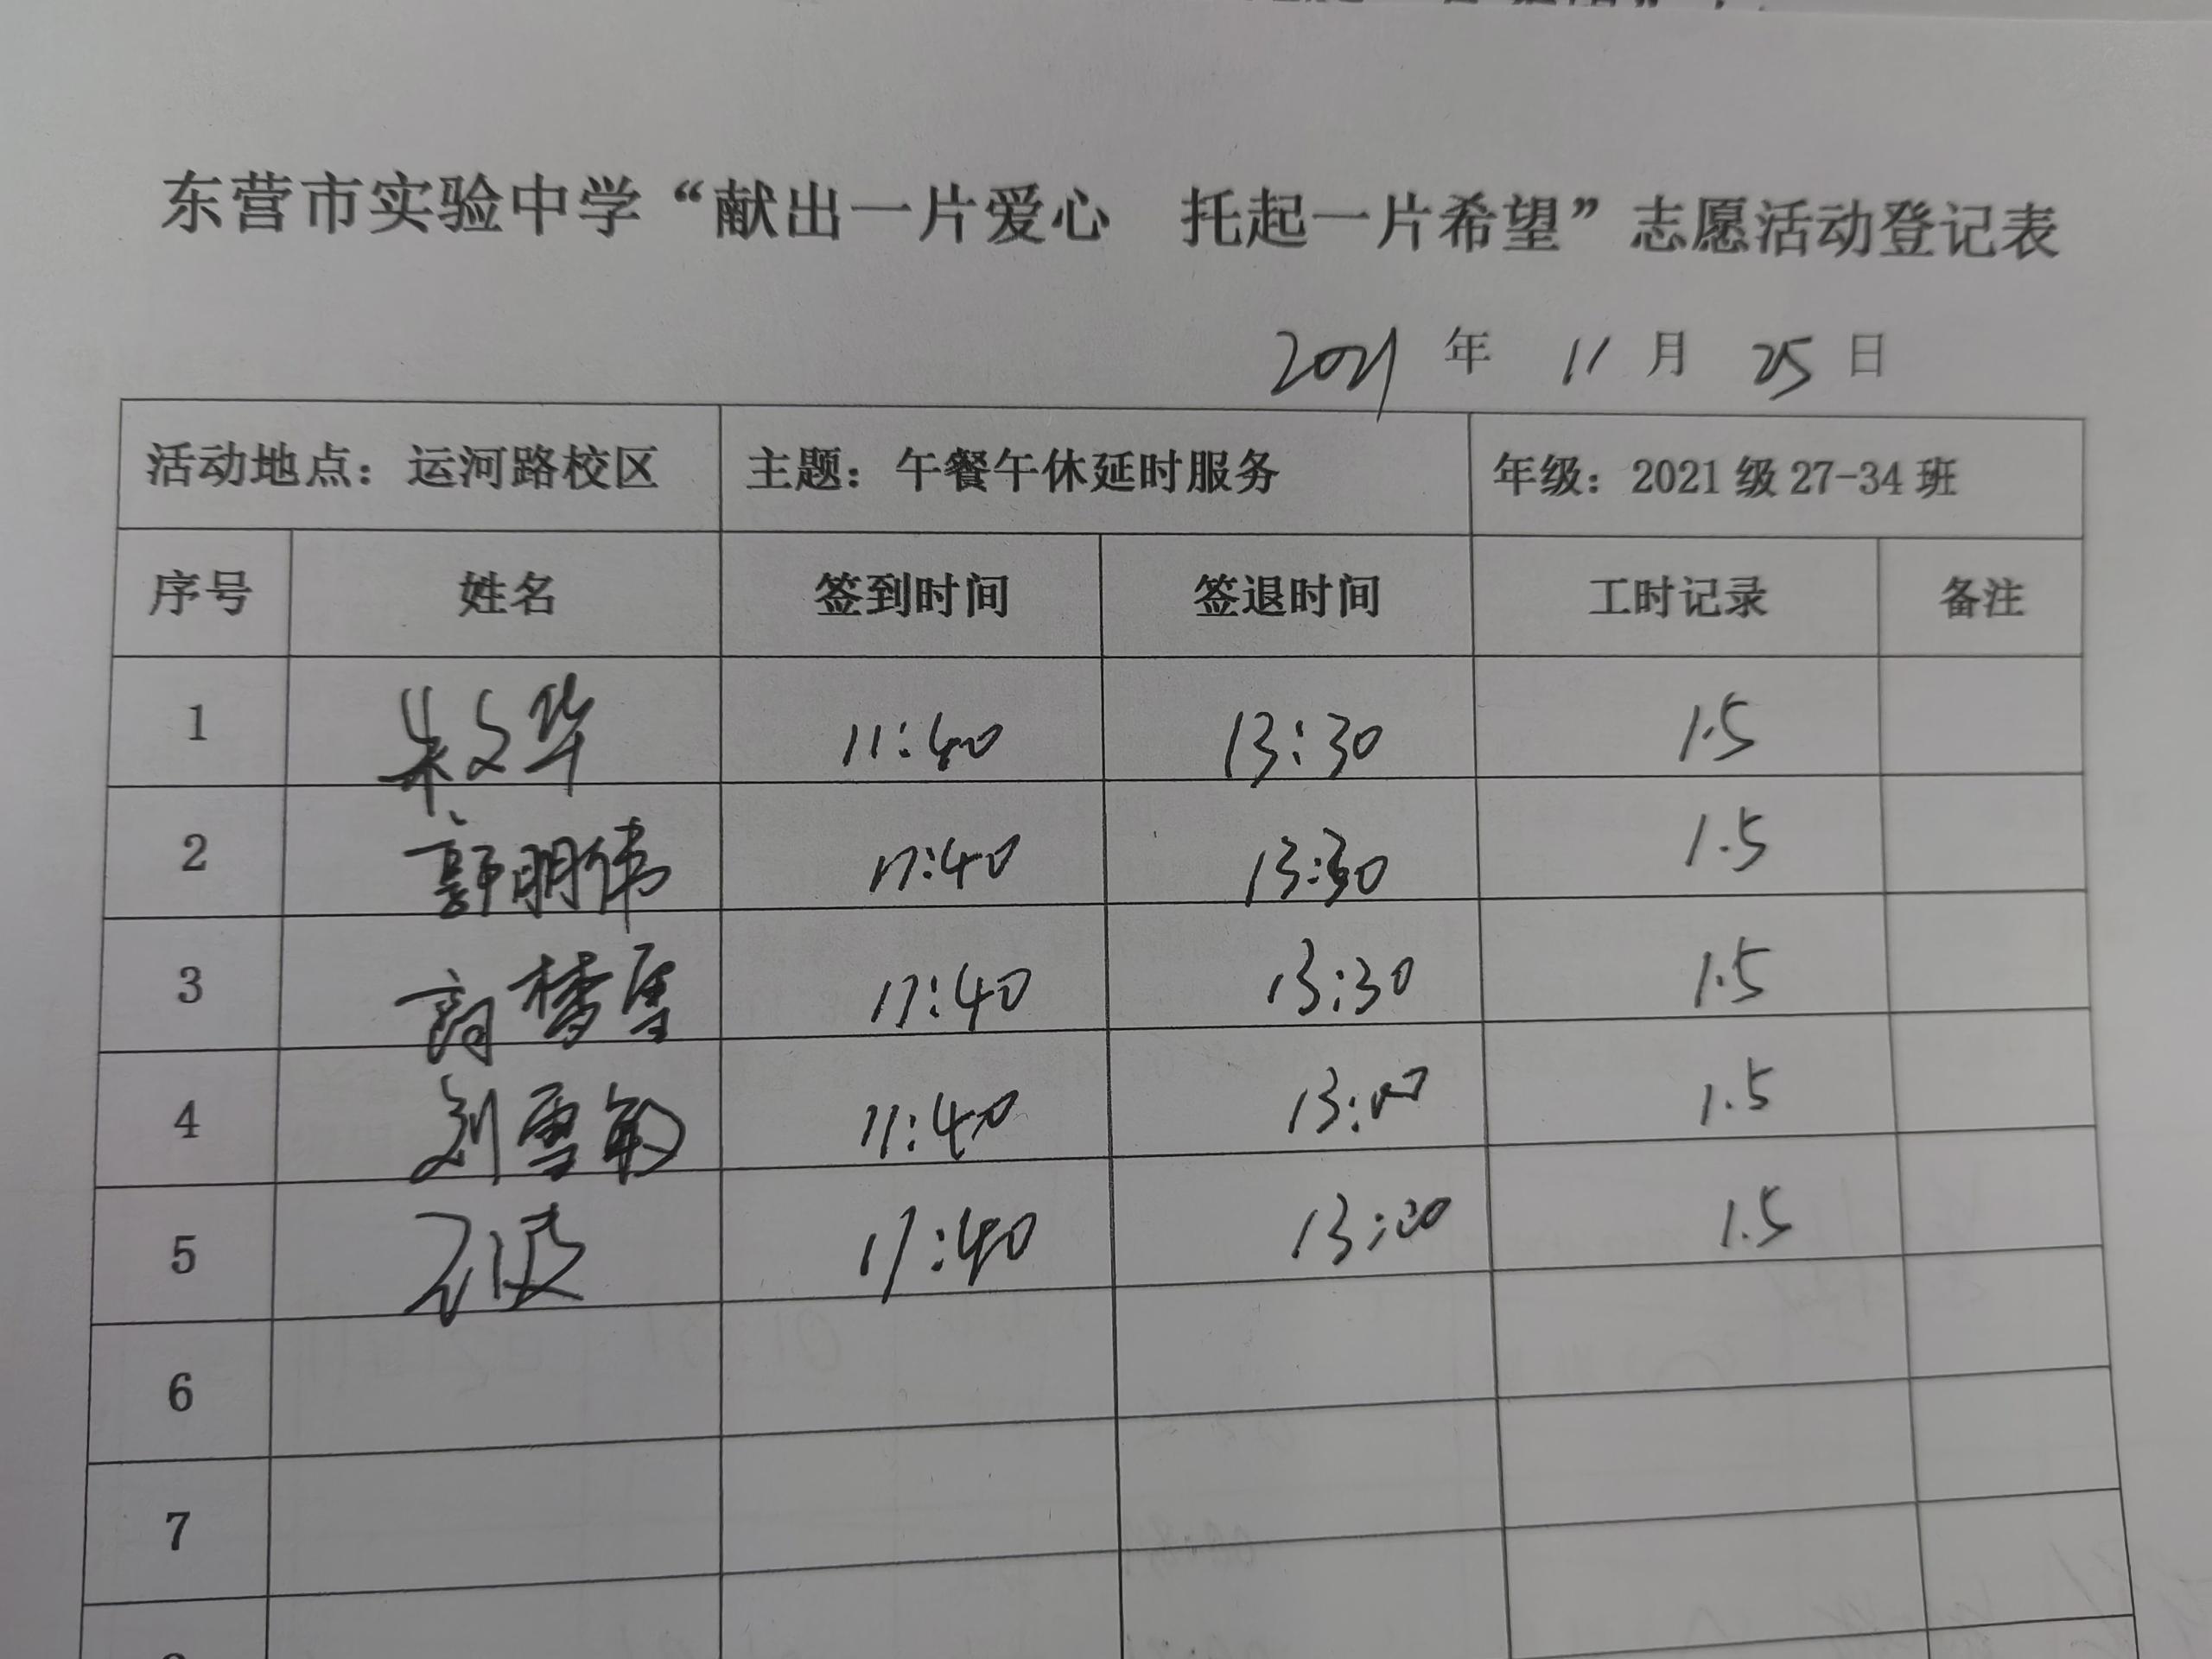 东营市实验中学“献出一片爱心 托起一片希望”志愿活动登记表
2021 年 11 月 25 日
活动地点：运河路校区 主题：午餐午休延时服务 年级：2021级27-34班
序号 姓名 签到时间 签退时间 工时记录 备注
1 朱文华 11:40 13:30 1.5
2 郭明伟 11:40 13:30 1.5
3 11:40 13:30 1.5
4 刘雪敏 11:40 13:00 1.5
5 11:40 1.5
6
7